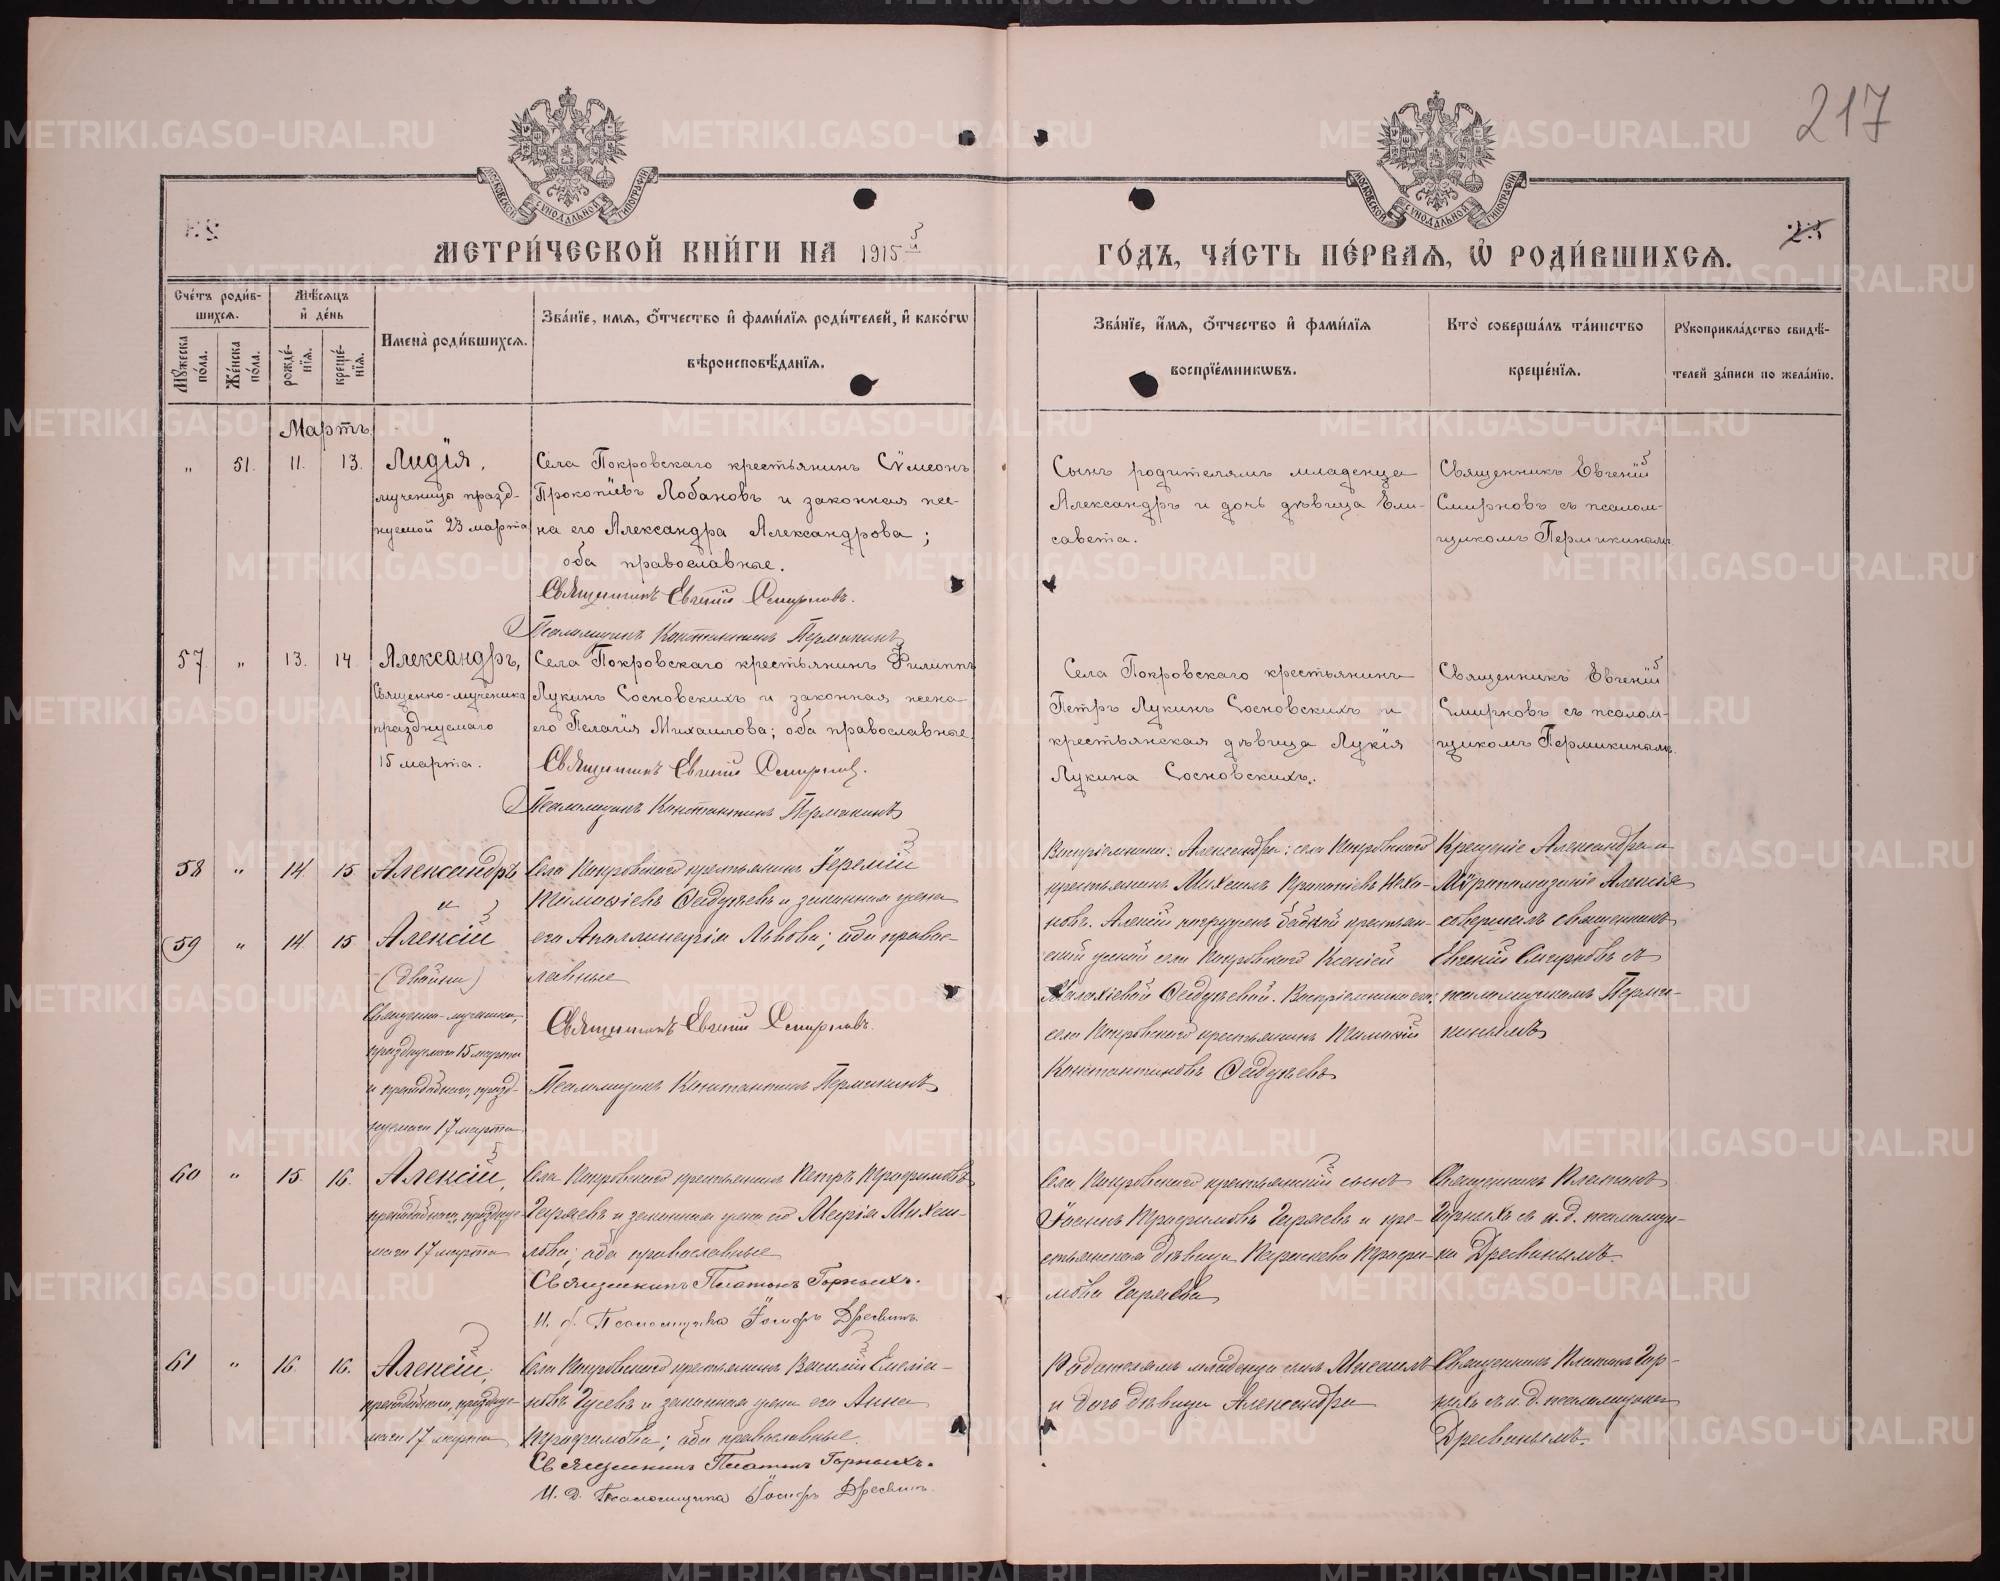 217
МЕТРИ́ЧЕСКОЙ КНИ́ГИ НА 1915й
ГО́ДЪ, ЧА́СТЬ ПЕ́РВАѦ, Ѡ҆ РОДИ́ВШИХСѦ.
Сче́тъ роди́в-
шихсѧ.
Мꙋ́жеска по́ла.
Же́нска по́ла.
Мѣ́сѧцъ
и҆ де́нь
рожде́-
нїѧ.
креще́-
нїѧ.
Имена̀ роди́вшихсѧ.
Зва́нїе, имѧ, ѻ҆́тчество и҆ фами́лїѧ роди́телей, и҆ како́гѡ
вѣроисповѣ́данїѧ.
Зва́нїе, и҆́мѧ, ѻ҆́тчество и҆ фами́лїѧ
воспрїе́мникѡвъ.
Кто̀ соверша́лъ та́инство
креще́нїѧ.
Рꙋкоприкла́дство свидѣ́-
телей за́писи по жела́нїю.
Мартъ
„ 51. 11. 13. Лидія,
мученицы празд-
нуемой 23 марта
Села Покровскаго крестьянинъ Сѵмеонъ
Прокопіевъ Лобановъ и законная же-
на его Александра Александрова;
оба православные.
Священникъ Евгеній Смирновъ.
Псаломщикъ Константинъ Пермикинъ
Сынъ родителямъ младенца
Александръ и дочь дѣвица Ели-
савета.
Священникъ Евгеній
Смирновъ съ псалом-
щикомъ Пермикинымъ.
57 „ 13. 14. Александръ,
Священно-мученика
празднуемаго
15 марта.
Села Покровскаго крестьянинъ Филиппъ
Лукинъ Сосновскихъ и законная жена
его Пелагія Михаилова; оба православные
Священникъ Евгеній Смирновъ.
Псаломщикъ Константинъ Пермикинъ
Села Покровскаго крестьянинъ
Петръ Лукинъ Сосновскихъ и
крестьянская дѣвица Лукія
Лукина Сосновскихъ.
Священникъ Евгеній
Смирновъ съ псалом-
щикомъ Пермикинымъ.
58 „ 14 15 Александръ
и
59 „ 14 15 Алексій
(двойни)
Священно-мученика,
празднуемаго 15 марта
и преподобнаго, празд-
нуемаго 17 марта
Села Покровскаго крестьянинъ Іеремій
Тимофіевъ Ѳедуневъ и законная жена
его Аполлинарія Львова; оба право-
лавные
Священникъ Евгеній Смирновъ.
Псаломщикъ Константинъ Пермикинъ
Воспріемники: Александра: села Покровскаго
крестьянинъ Михаилъ Прокопіевъ
новъ. Алексій погруженъ бабкой крестьян-
ской женой села Покровскаго Ксеніей
Малахіевой Ѳедуневой. Воспріемникъ его:
села Покровскаго крестьянинъ Тимофій
Константиновъ Ѳедуневъ
Крещеніе Александра и
Мѵропомазаніе Алексія
совершалъ священникъ
Евгеній Смирновъ съ
псаломщикомъ Перми-
кинымъ
60 „ 15. 16. Алексій,
преподобнаго, праздну-
емаго 17 марта
Села Покровскаго крестьянинъ Петръ Трофимовъ
Гиряевъ и законная жена его Марія Михаи-
лова; оба православные
Священникъ Платонъ Горныхъ.
И. д. Псаломщика Іосифъ Дресвинъ.
Села Покровскаго крестьянскій сынъ
Іоаннъ Трофимовъ Гиряевъ и кре-
стьянская дѣвица Параскева Трофи-
мова Гиряева
Священникъ Платонъ
Горныхъ съ и. д. псаломщи-
ка Дресвинымъ.
61 „ 16. 16. Алексій,
преподобнаго, праздну-
емаго 17 марта
Села Покровскаго крестьянинъ Василій Емеліа-
новъ Гусевъ и законная жена его Анна
Трофимова; оба православные.
Священникъ Платонъ Горныхъ.
И. д. Псаломщика Іосифъ Дресвинъ.
Родителямъ младенца сынъ Михаилъ
и дочь дѣвица Александра
Священникъ Платонъ Гор-
ныхъ съ и. д. псаломщика
Дресвинымъ.